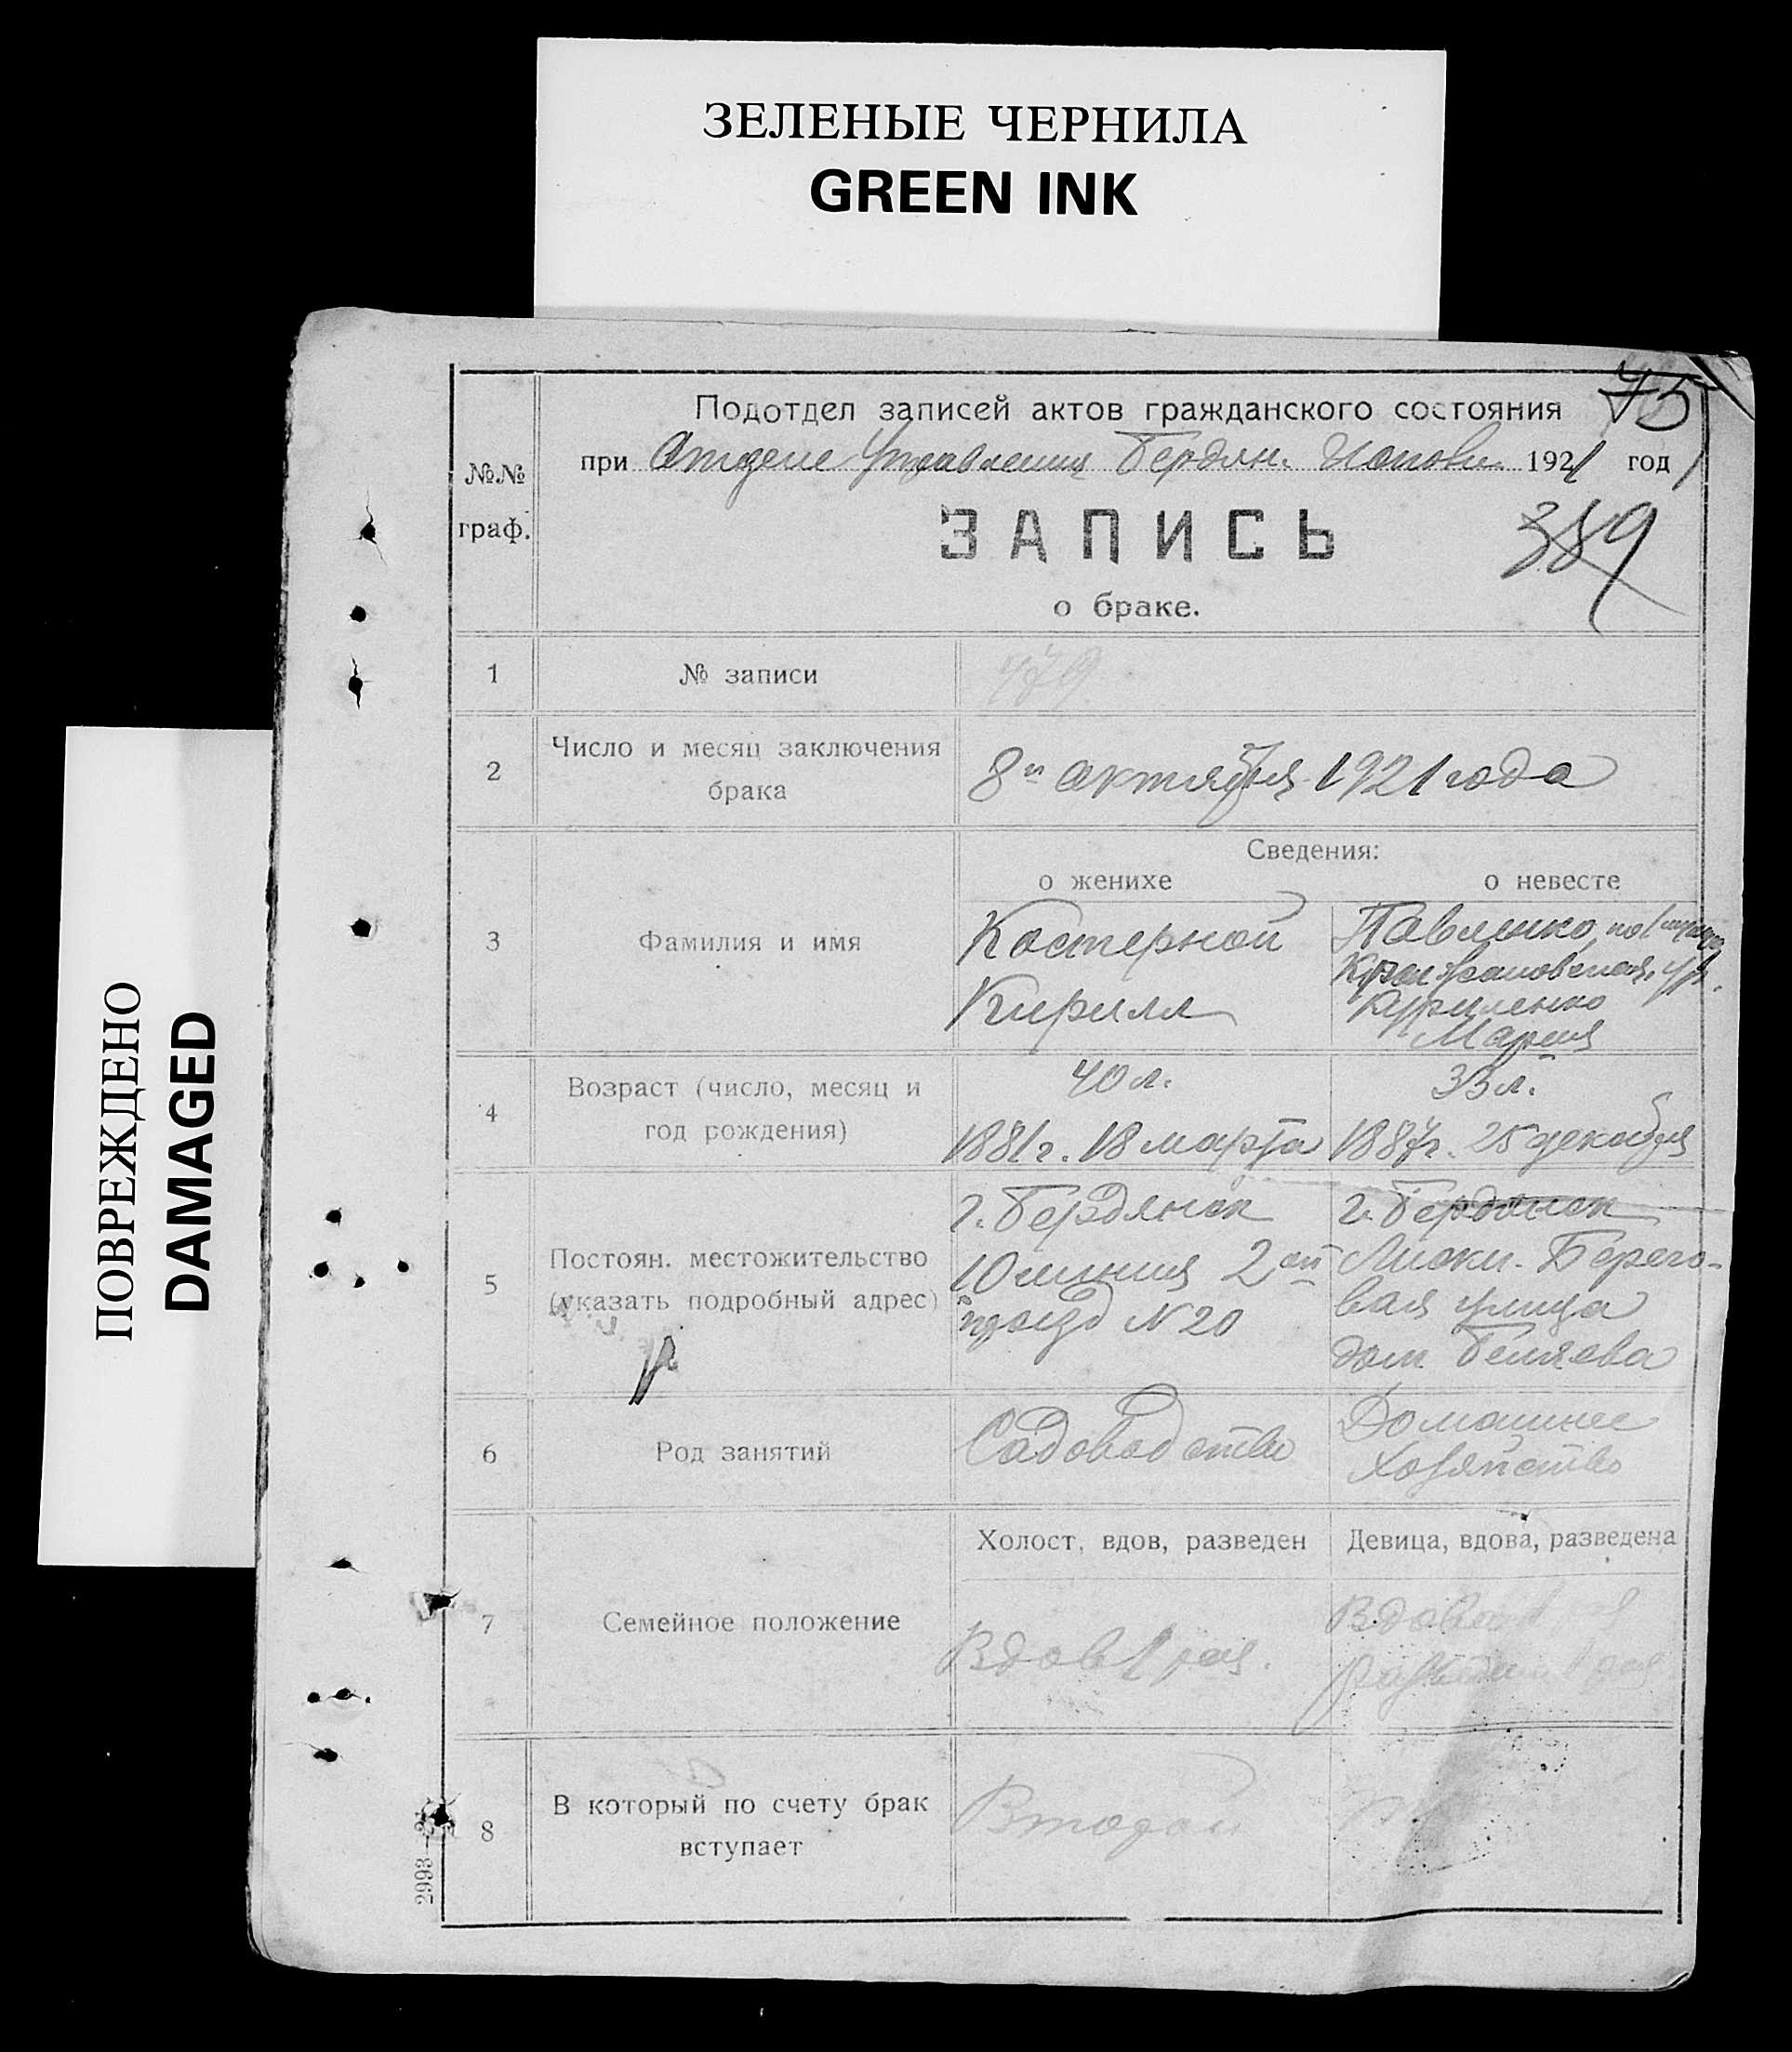 ЗЕЛЕНЫЕ ЧЕРНИЛА
GREEN INK
ПОВРЕЖДЕНО
DAMAGED
75
Подотдел записей актов гражданского состояния
при Отделе Управления Бердян. 1921 год
№№ граф.
ЗАПИСЬ
389
о браке.
1 № записи 479
2 Число и месяц заключения
брака
8го октября 1921 года
Сведения:
о женихе о невесте
3 Фамилия и имя
Костерной
Кирилл
Павленко, по
Куриленко
Мария
4 Возраст (число, месяц и
год рождения)
40 л. 33 л.
1881 г. 18 марта 1887 г. 25 декабря
5 Постоян. местожительство
(указать подробный адрес)
г. Бердянск
10 линия 2ой
проезд № 20
г. Бердянск
Лиски. Берего-
вая улица
дом Беляева
6 Род занятий
Садоводство
Домашнее
Хозяйство
7 Семейное положение
Холост, вдов, разведен Девица, вдова, разведена
Вдов 1 раз.
8 В который по счету брак
вступает
Второй
2993